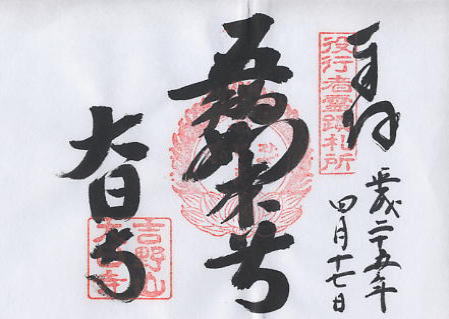 役行者霊蹟札所
奉拝
平成二十五年
四月十七日
五智如来
大日寺
吉野山
大日寺